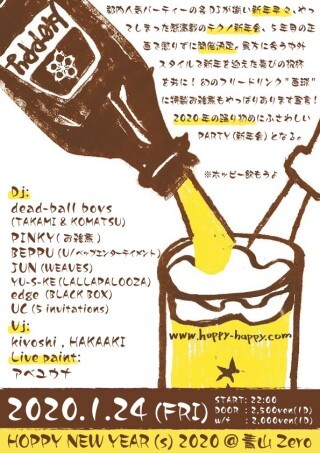 都内人気パーティーの名DJが揃い新年早々、やっ
てしまった怒涛都のテクノ新年会、5年目の正
直で懲りずに開催決定。貴方に会うや外
スタイルで新年を迎えた喜びの祝杯
を共に！幻のフリードリンク"画球"
に特製お雑煮もやっぱりあります宣言！
2020年の踊り初めにふさわしい
PARTY(新年会)となる。
※ホッピー飲もうよ
Happy
Dj:
dead-ball boys
(TAKAMI & KOMATSU)
PINKY(お雑煮)
BEPPU(U/ベップエンターテイメント)
JUN(WEAVES)
YU-S-KE(LALLAPALOOZA)
edge (BLACK BOX)
UC(5 invitations)
Vj:
kiyoshi , HAKAAKI
Live paint:
アベユウナ
www.hoppy-happy.com
2020.1.24 (FRI)
START: 22:00
DOOR : 2,500yen(1D)
w/f : 2,000yen(1D)
HOPPY NEW YEAR (s) 2020 @ 青山 Zero